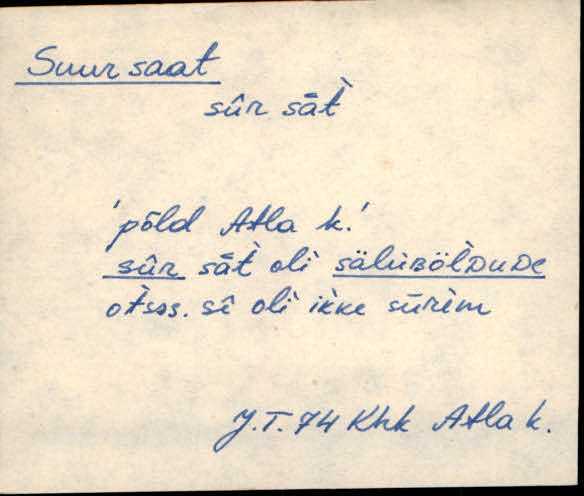 Suur saat
sûr sāt̀
'põld Atla k.'
sûr sāt̀ oli säliʙöl̀ᴅuᴅe
ot̀sɜs. sê oli ikke sūrèm
J.T. 74 Khk Atla k.